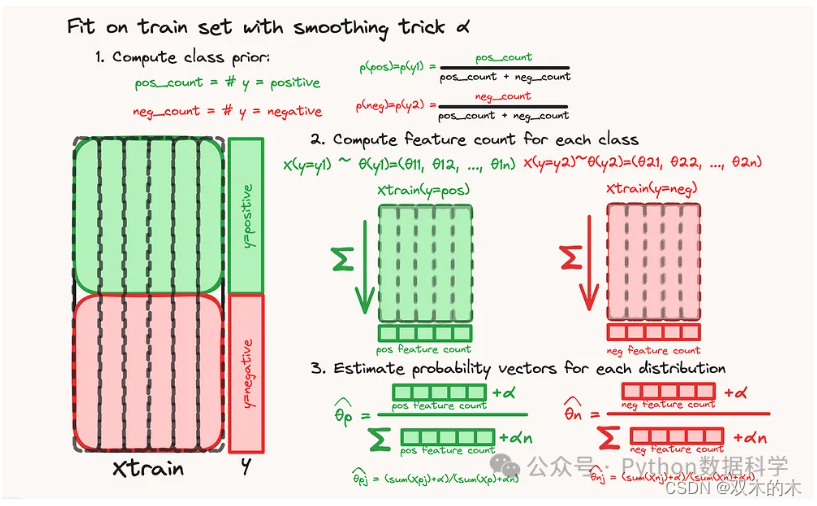 Fit on train set with smoothing trick α
1. Compute class prior:
pos_count = # y = positive
neg_count = # y = negative
p(pos)=p(y1) =
pos_count
pos_count + neg_count
p(neg)=p(y2) =
neg_count
pos_count + neg_count
2. Compute feature count for each class
X(y=y1) ~ θ(y1)=(θ11, θ12, ..., θ1n)
X(y=y2)~θ(y2)=(θ21, θ22, ..., θ2n)
Xtrain(y=pos)
Xtrain(y=neg)
Σ
Σ
pos feature count
neg feature count
y=positive
y=negative
Xtrain
y
3. Estimate probability vectors for each distribution
θ̂p =
+α
pos feature count
Σ
+αn
pos feature count
θ̂n =
+α
neg feature count
Σ
+αn
neg feature count
θ̂pj = (sum(xpj)+α)/(sum(xp)+αn)
θ̂nj = (sum(xnj)+α)/(sum(xn)+αn)
公众号 · Python数据科学
CSDN @双木的木